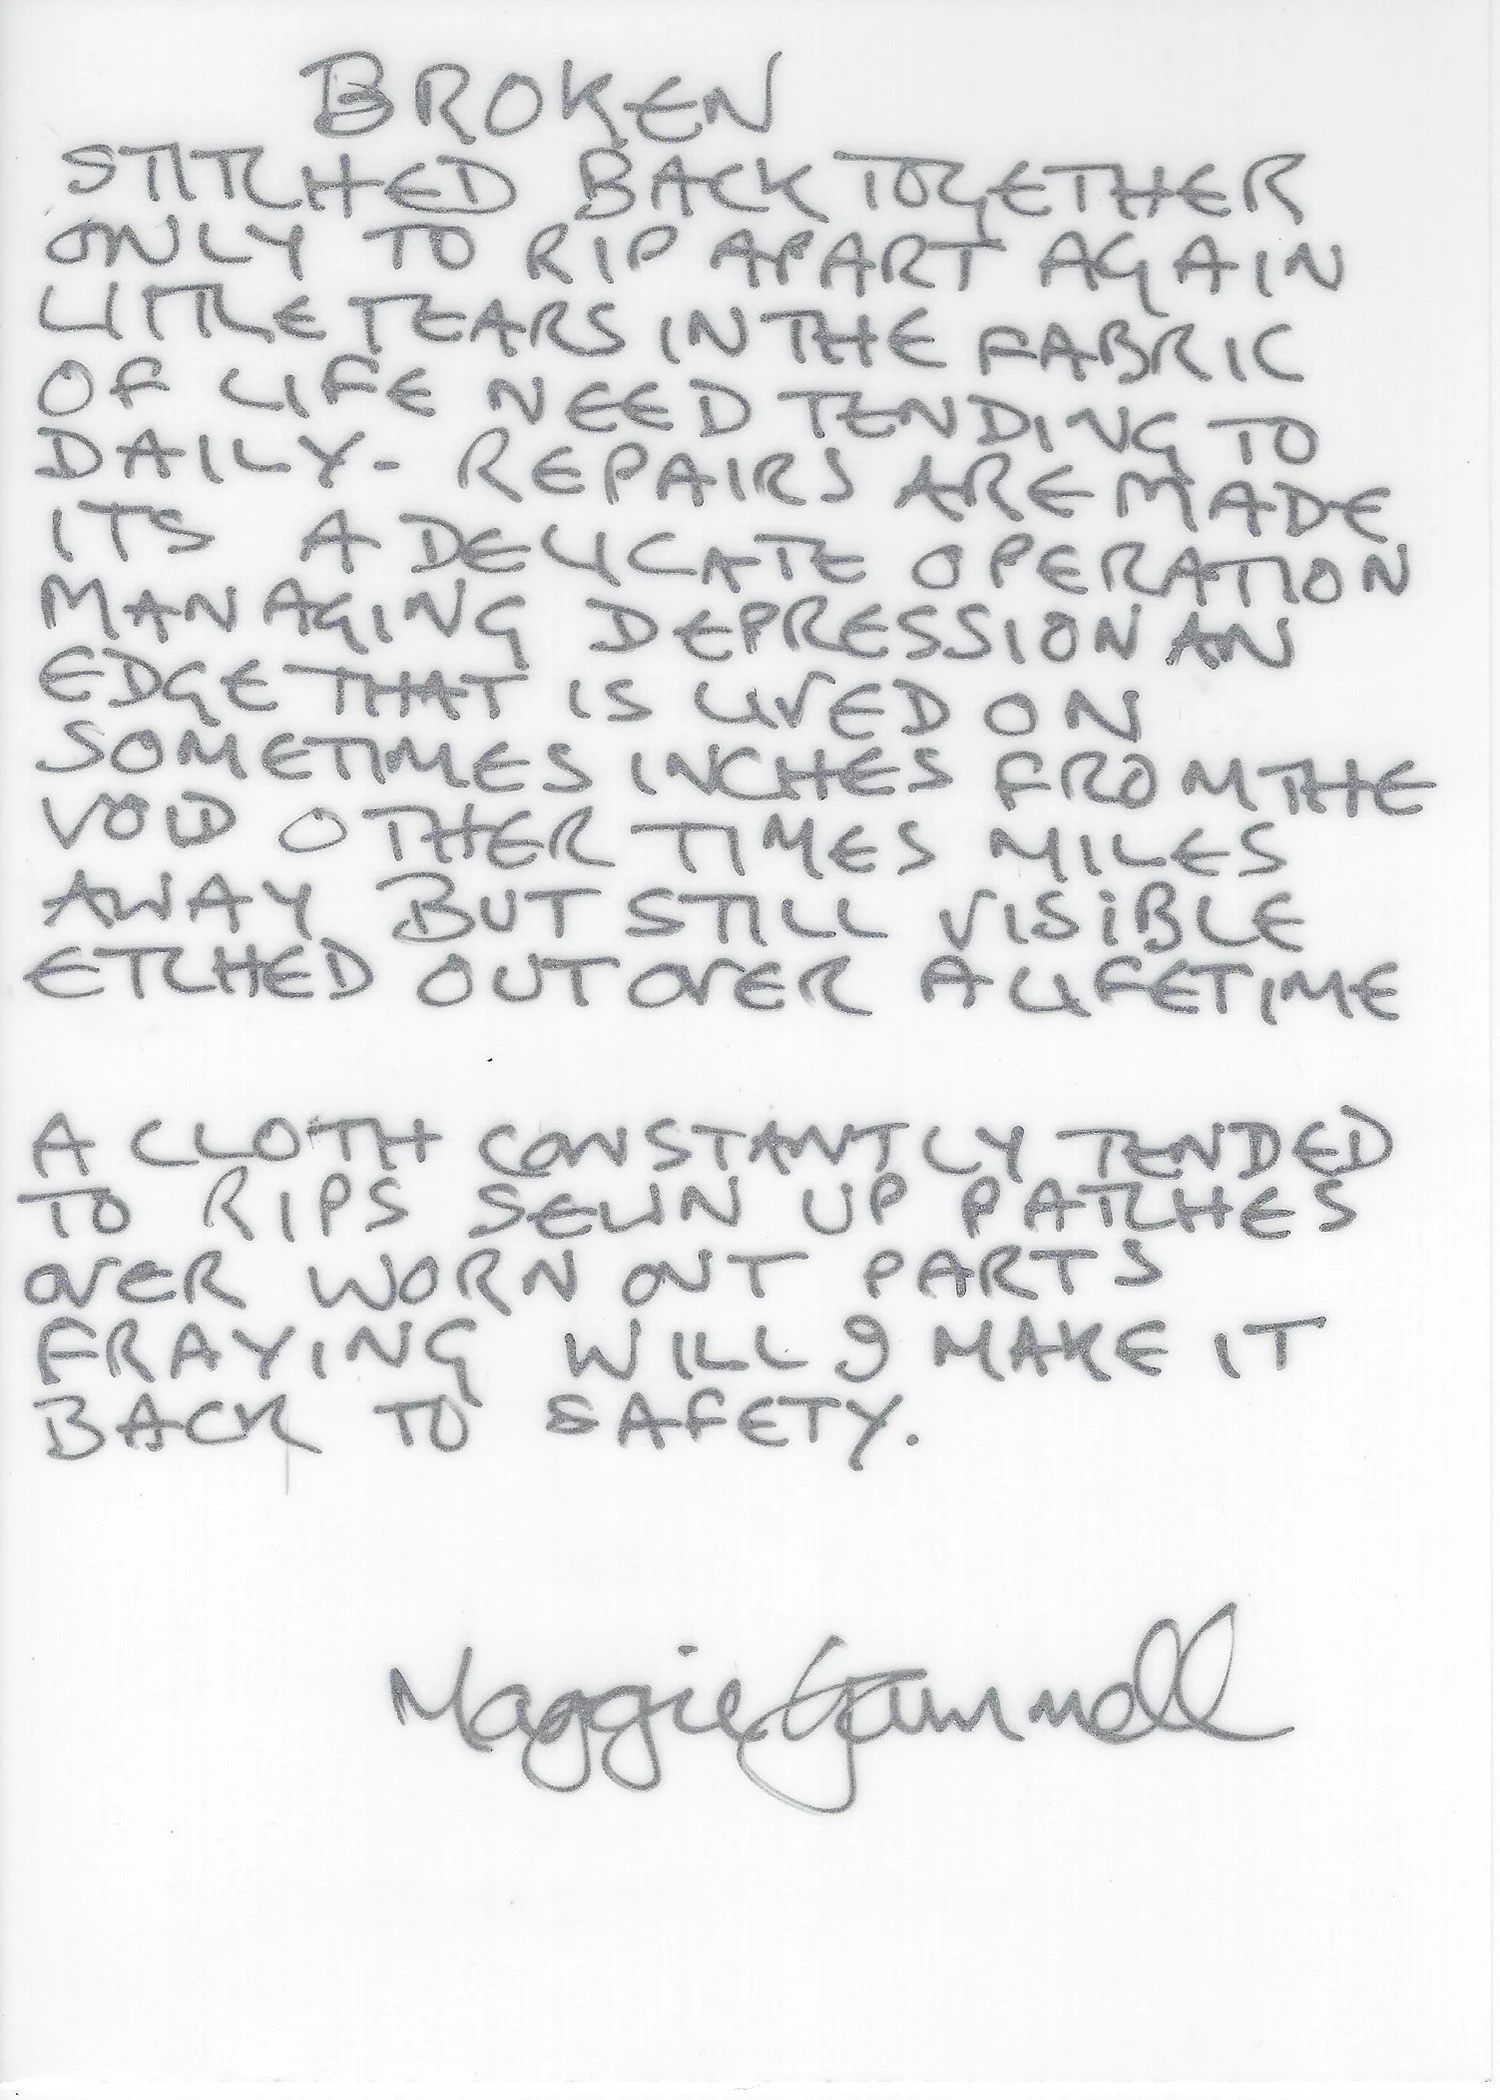 BROKEN
STITCHED BACK TOGETHER
ONLY TO RIP APART AGAIN
LITTLE TEARS IN THE FABRIC
OF LIFE NEED TENDING TO
DAILY - REPAIRS ARE MADE
ITS A DELICATE OPERATION
MANAGING DEPRESSION AN
EDGE THAT IS LIVED ON
SOMETIMES INCHES FROM THE
VOID OTHER TIMES MILES
AWAY BUT STILL VISIBLE
ETCHED OUT OVER A LIFETIME
A CLOTH CONSTANTLY TENDED
TO RIPS SEWN UP PATCHES
OVER WORN OUT PARTS
FRAYING WILL I MAKE IT
BACK TO SAFETY.
Maggie Gammell